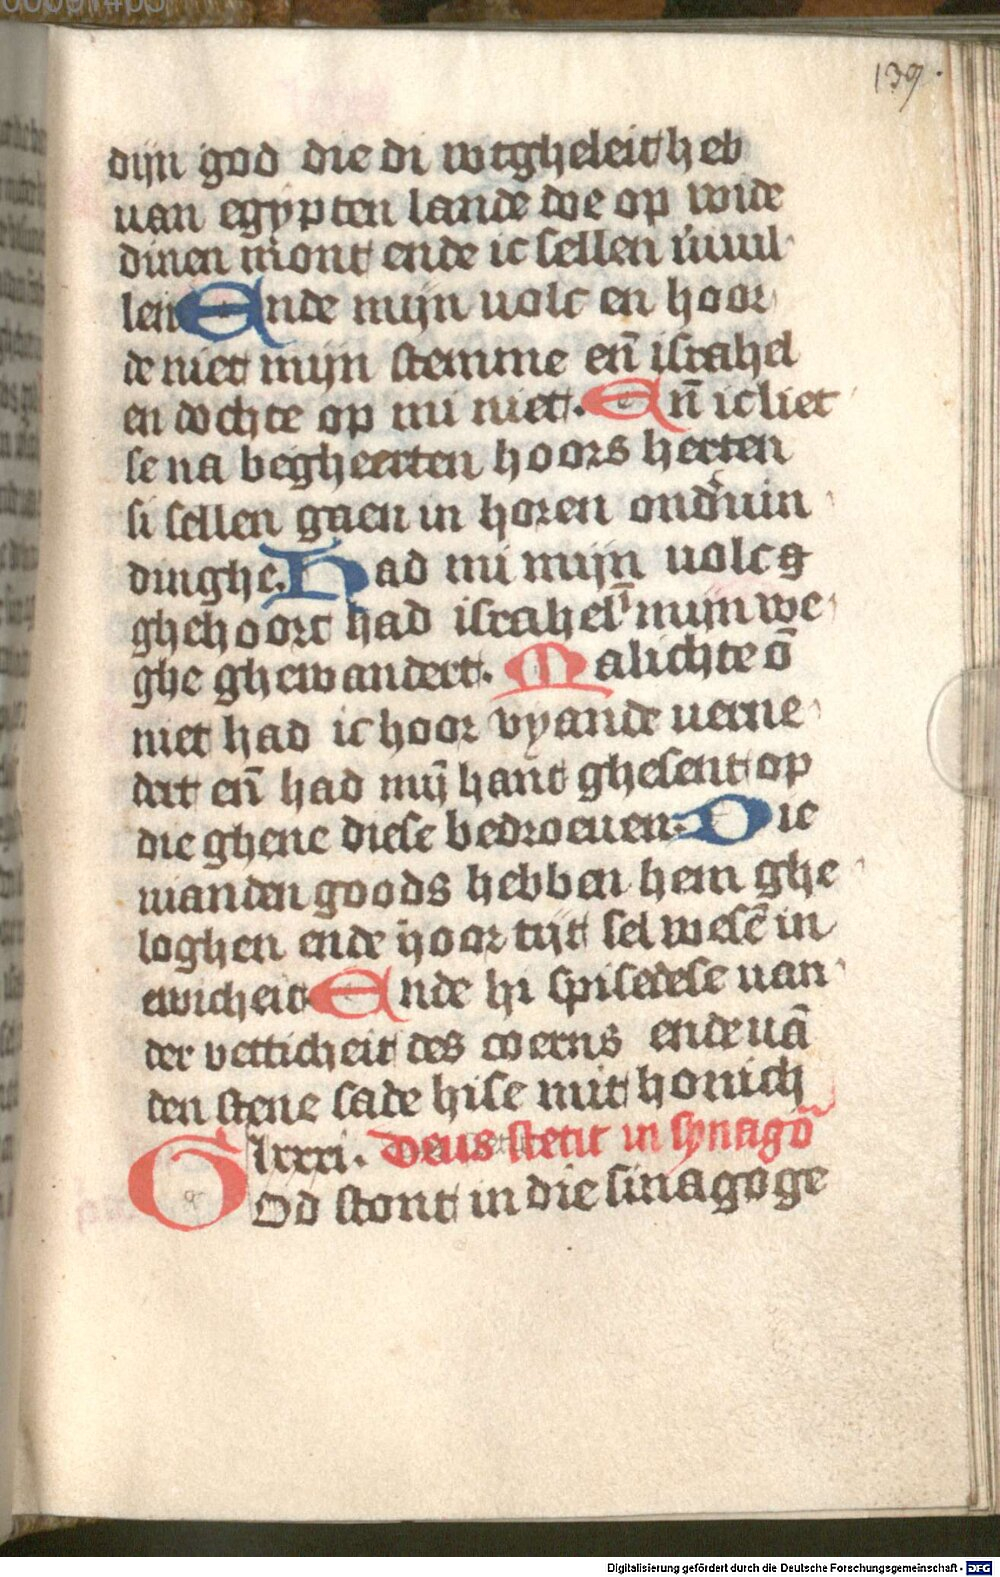 139.
dijn god die di wtgheleit heb
van egypten lande doe op wide
dinen mont ende ic sellen v̇vul
len Ende mijn volc en hoor
de niet mijn stemme en̄ israhel
en dochte op mi niet. En̄ ic liet
se na begheerten hoors herten
si sellen gaen in horen ond̉vin
dinghe. Had mi mijn volc g
ghehoort had israhel mijn we
ghe ghewandert. Malichte ō
niet had ic hoor vyande verne
dert en̄ had mij̄ hant ghesent op
die ghene diese bedroeuen. Die
vianden goods hebben hem ghe
loghen ende hoor tijt sel wesē in
ewicheit Ende hi spisedese van
der vetticheit des coerns ende vā
den stene sade hise mit honich
lxxxi. Deus stetit in synagō
God stont in die sinagoge
Digitalisierung gefördert durch die Deutsche Forschungsgemeinschaft - DFG